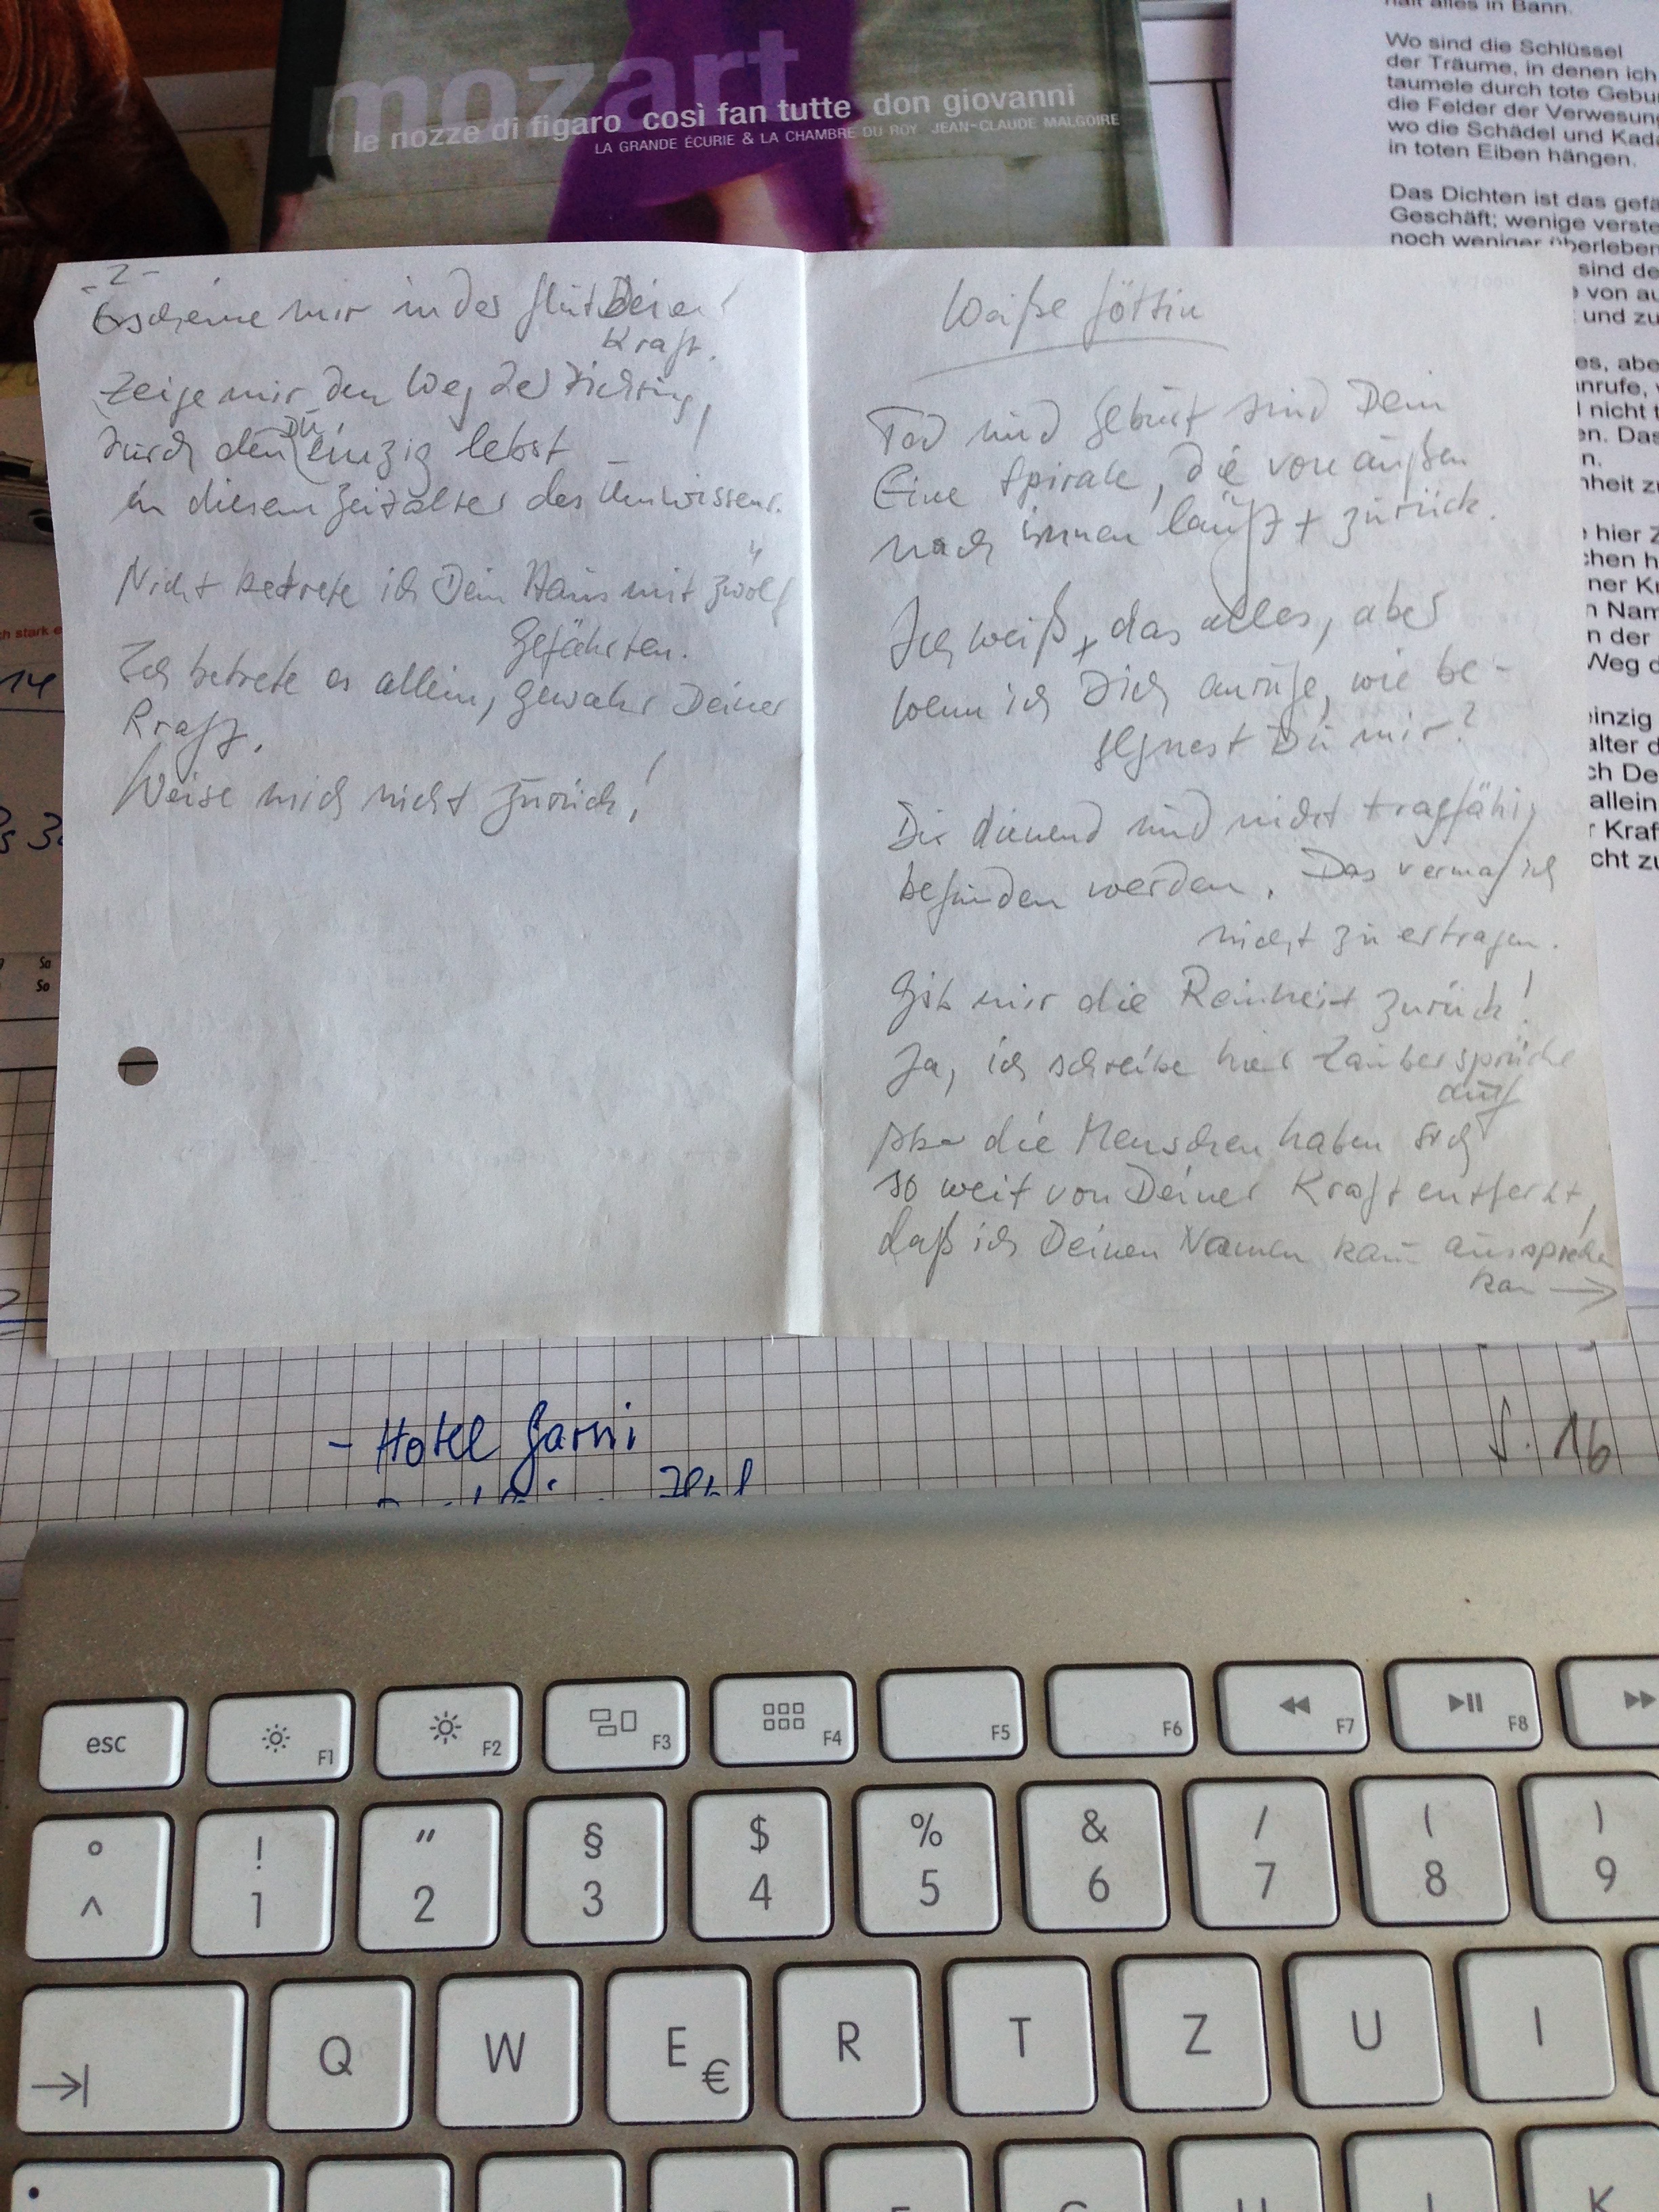 mozart
le nozze di figaro così fan tutte don giovanni
LA GRANDE ÉCURIE & LA CHAMBRE DU ROY JEAN-CLAUDE MALGOIRE
hält alles in Bann.
Wo sind die Schlüssel
der Träume, in denen ich
taumele durch tote Gebu
die Felder der Verwesung
wo die Schädel und Kada
in toten Eiben hängen.
Das Dichten ist das gefä
Geschäft; wenige verste
noch weniger überleben
sind de
von au
und zu
es, abe
nrufe,
nicht t
en. Das
n.
nheit zu
hier Z
chen h
ner Kr
n Nam
n der
Weg d
einzig
alter d
ch De
allein
r Kraf
cht zu
-2-
Erscheine mir in des Glut Deiner
Kraft.
Zeige mir den Weg der Dichtung,
durch den Du einzig lebst
in diesem Zeitalter des Unwissens.
Nicht betrete ich Dein Haus mit zwölf
Gefährten.
Ich betrete es allein, gewahr Deiner
Kraft.
Weise mich nicht zurück!
Weiße Göttin
Tod und Geburt sind Dein
Eine Spirale, die von außen
nach innen läuft + zurück.
Ich weiß das alles, aber
wenn ich Dich anrufe, wie be-
gegnest Du mir?
Dir dienend und nicht tragfähig
befunden werden. Das vermag ich
nicht zu ertragen.
Gib mir die Reinheit zurück!
Ja, ich schreibe hier Zaubersprüche
auf
Aber die Menschen haben sich
so weit von Deiner Kraft entfernt,
daß ich Deinen Namen kaum aussprechen
kann →
14
So
So
- Hotel Garni
S. 16
esc
F1
F2
F3
F4
F5
F6
F7
F8
° ! " § $ % & / ( )
^ 1 2 3 4 5 6 7 8 9
Q W E € R T Z U I